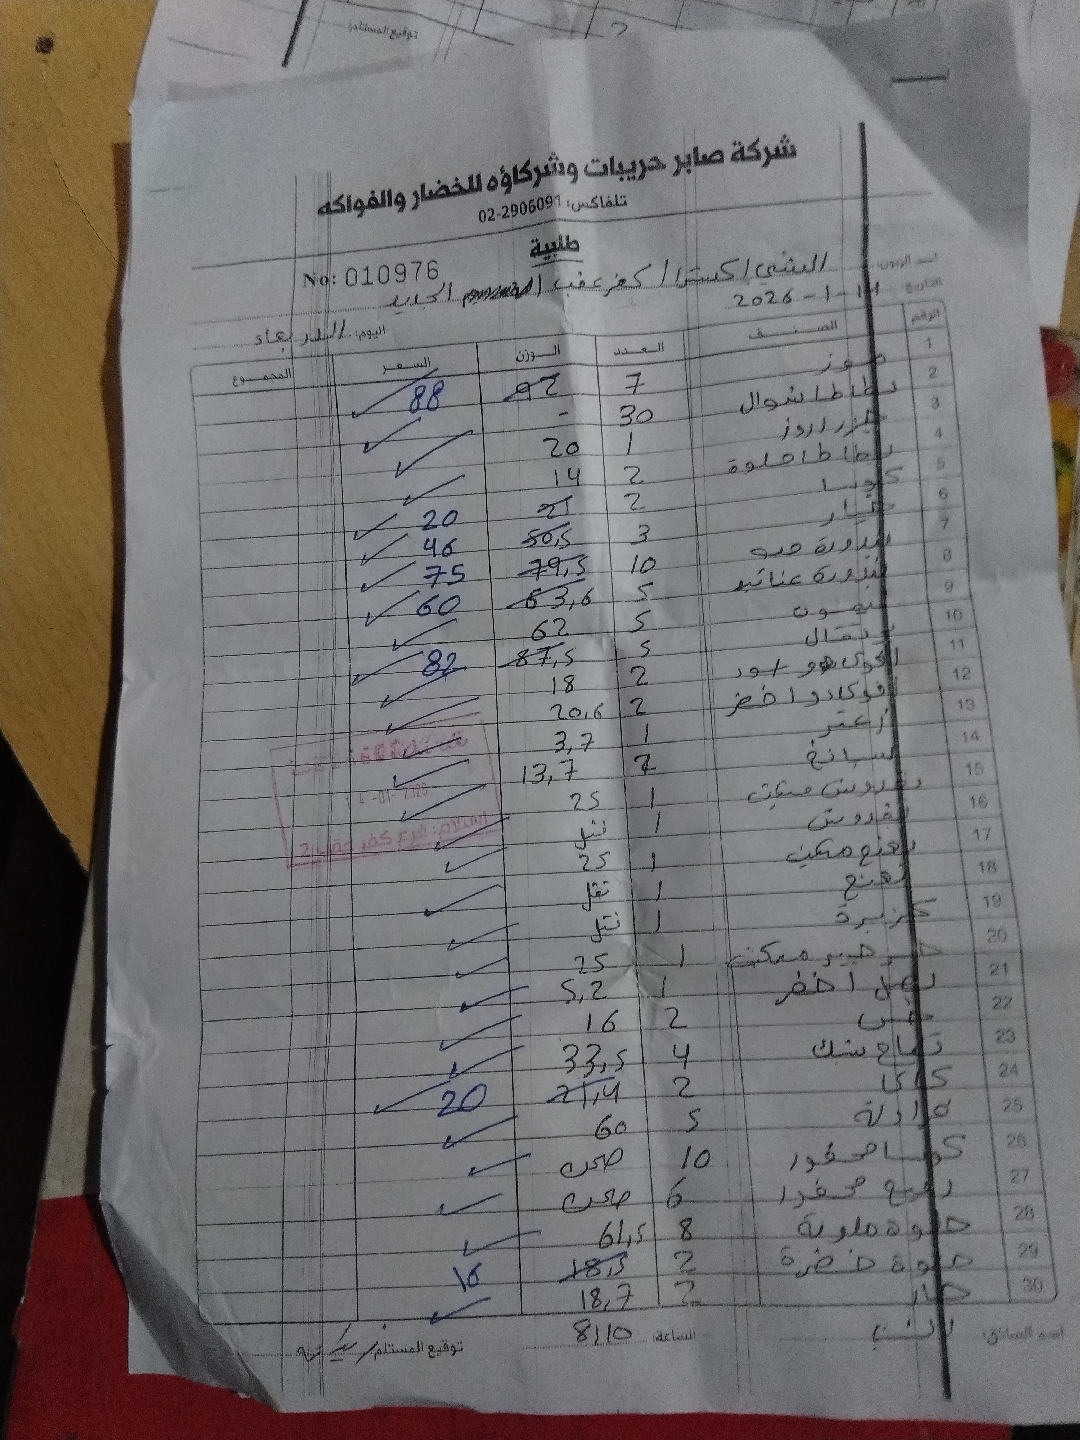 توقيع المستلم:
شركة صابر حريبات وشركاؤه للخضار والفواكه
تلفاكس: 02-2906091
طلبية
No: 010976
اسم الزبون: الشني اكسترا / كفر عقب الجديد
التاريخ: 14-1-2026
اليوم: الاربعاء
الرقم الصنف العدد الوزن السعر المجموع
1 موز 7 92 88
2 بطاطا شوال 30 -
3 جزر اروز 1 20
4 بطاطا حلوة 2 14
5 كوسا 2 21 20
6 خيار 3 50,5 46
7 بندورة 10 79,5 75
8 بندورة عناقيد 5 63,6 60
9 ليمون 5 62
10 برتقال 5 87,5 82
11 2 18
12 افوكادو اخضر 2 20,6
13 زعتر 1 3,7
14 سبانخ 2 13,7
15 بقدونس 1 25
16 بقدونس 1
17 نعنع 1 25
18 نعنع 1
19 كزبرة 1
20 جرجير 1 25
21 بصل اخضر 1 5,2
22 خس 2 16
23 تفاح سنك 4 33,5
24 كاكا 2 21,4 20
25 فراولة 5 60
26 كوسا محفور 10 صحن
27 محفور 6 صحن
28 حلوة ملونة 8 61,5
29 حلوة خضرة 2 18,5 16
30 حار 2 18,7
اسم السائق:
الساعة: 8,10
توقيع المستلم: